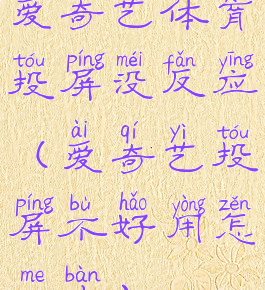 爱奇艺体育
tóu píng méi fǎn yīng
投屏没反应
ài qí yì tóu
(爱奇艺投
píng bù hǎo yòng zěn
屏不好用怎
me bàn